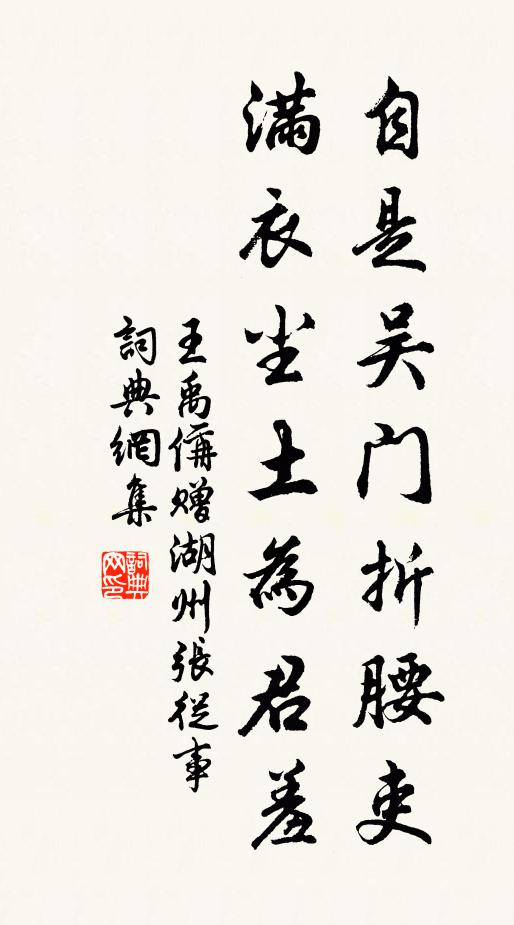 自是吴门折腰吏
满衣尘土為君羞
王禹偁赠湖州張從事
詞典網集
詞典网印